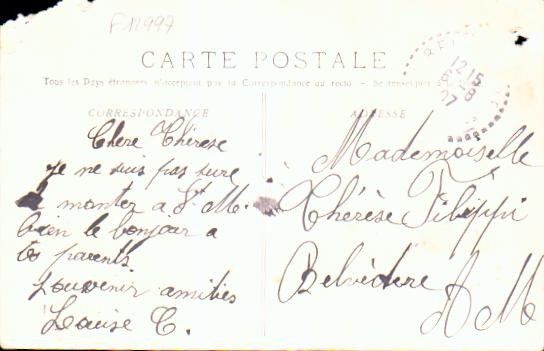 F12997
CARTE POSTALE
Tous les Pays étrangers n'acceptent pas la Correspondance au recto – Se renseigner
CORRESPONDANCE
Chere Thérese
je ne suis pas sure
monter a St M.
bien le bonjour a
tes parents
Souvenir amities
Louise C.
ADRESSE
Mademoiselle
Thérèse Filippi
Belvédère
A M
12-15
07